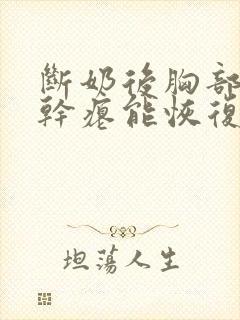 斷奶後胸部
幹癟能恢復
坦蕩人生